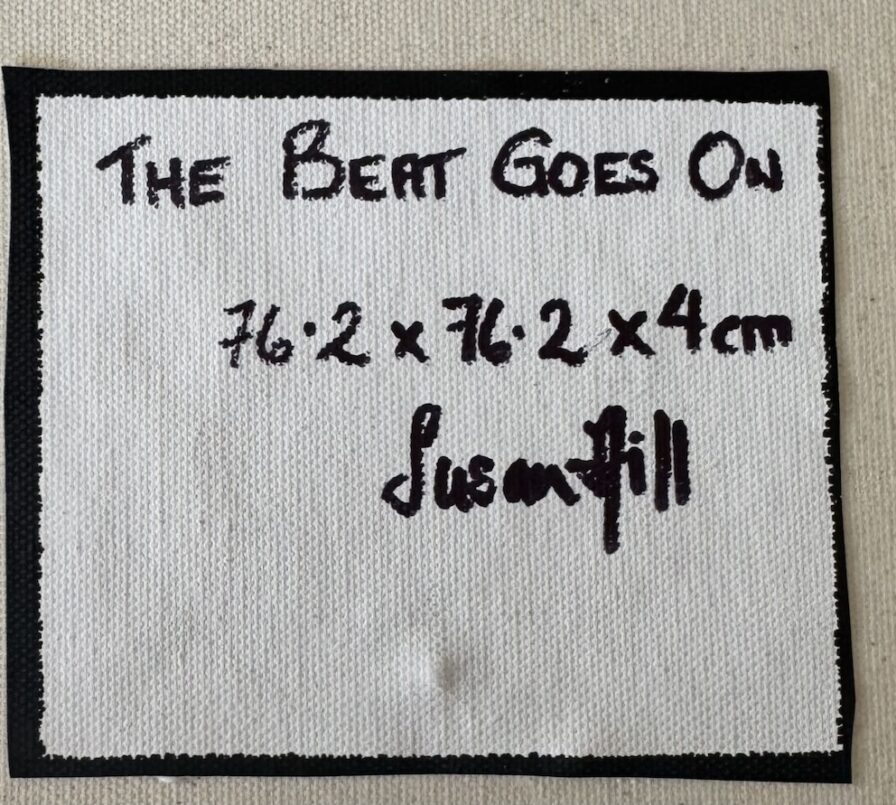 THE BEAT GOES ON
76.2 x 76.2 x 4cm
Susan Hill